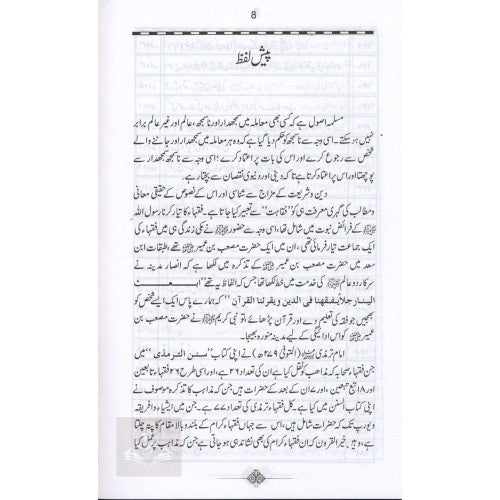 8
پیش لفظ
مسلمہ اصول ہے کہ کسی بھی معاملہ میں سمجھدار اور ناسمجھ، عالم اور غیر عالم برابر
نہیں ہو سکتے۔ اسی وجہ سے ناسمجھ کو حکم دیا گیا ہے کہ وہ ہر معاملہ میں سمجھدار اور جاننے والے
شخص سے رجوع کرے اور اس کی بات پر اعتماد کرے؛ اسی وجہ سے ناسمجھ، سمجھدار سے
پوچھتا اور اس پر اعتماد کرتا ہے تا کہ دینی اور دنیوی نقصان سے بچتا رہے۔
دین و شریعت کے مزاج سے شناسی اور اس کے نصوص کے حقیقی معانی
و مطالب کی گہری معرفت ہی کو ”فقاہت“ سے تعبیر کیا جاتا ہے۔ فقہاء کا تیار کرنا رسول اللہ
ﷺ کے فرائض نبوت میں شامل تھا، اسی وجہ سے حضور ﷺ نے مکی زندگی ہی میں فقہاء کی
ایک جماعت تیار فرمائی تھی، ان میں ایک حضرت مصعب بن عمیر تھے، طبقات ابن
سعد میں حضرت مصعب بن عمیر کے تذکرہ میں لکھا ہے کہ انصار مدینہ نے
سرکار دو عالم ﷺ کی خدمت میں خط لکھا تھا جس کہ الفاظ یہ تھے ”ابعث
الینا رجلا یفقهنا فی الدین ویقرئنا القرآن“ کہ ہمارے پاس ایک ایسے شخص کو
بھیجیں جو فقہ کی تعلیم دے اور قرآن پڑھائے، تو نبی کریم ﷺ نے حضرت مصعب بن
عمیر کو اس ادائیگی کے لیے مدینہ منورہ بھیجا۔
امام ترمذی (المتوفی ۲۷۹ھ) نے اپنی کتاب ”سنن الترمذی“ میں
جن فقہاء صحابہ کے مذاہب کو نقل کیا ہے ان کی تعداد ۲۶ ہے، اور اسی طرح ۲۶ فقہاء تابعین
اور ۱۸ تبع تابعین، اور ۷ ان کے بعد کے حضرات ہیں جن کے مذاہب کا تذکرہ موصوف نے
اپنی کتاب السنن میں کیا ہے۔ کل فقہاء ترمذی کی تعداد ۷۷ ہے۔ جن میں ایشیاء و افریقہ
و یورپ تک کے حضرات شامل ہیں، اس سے جہاں فقہاء کرام کے بلند و بالا مقام کا پتہ چلتا
ہے، وہیں خیر القرون کہ ان فقہاء کرام کی بھی نشاندہی ہو جاتی ہے جن کہ مذاہب پر عمل کیا